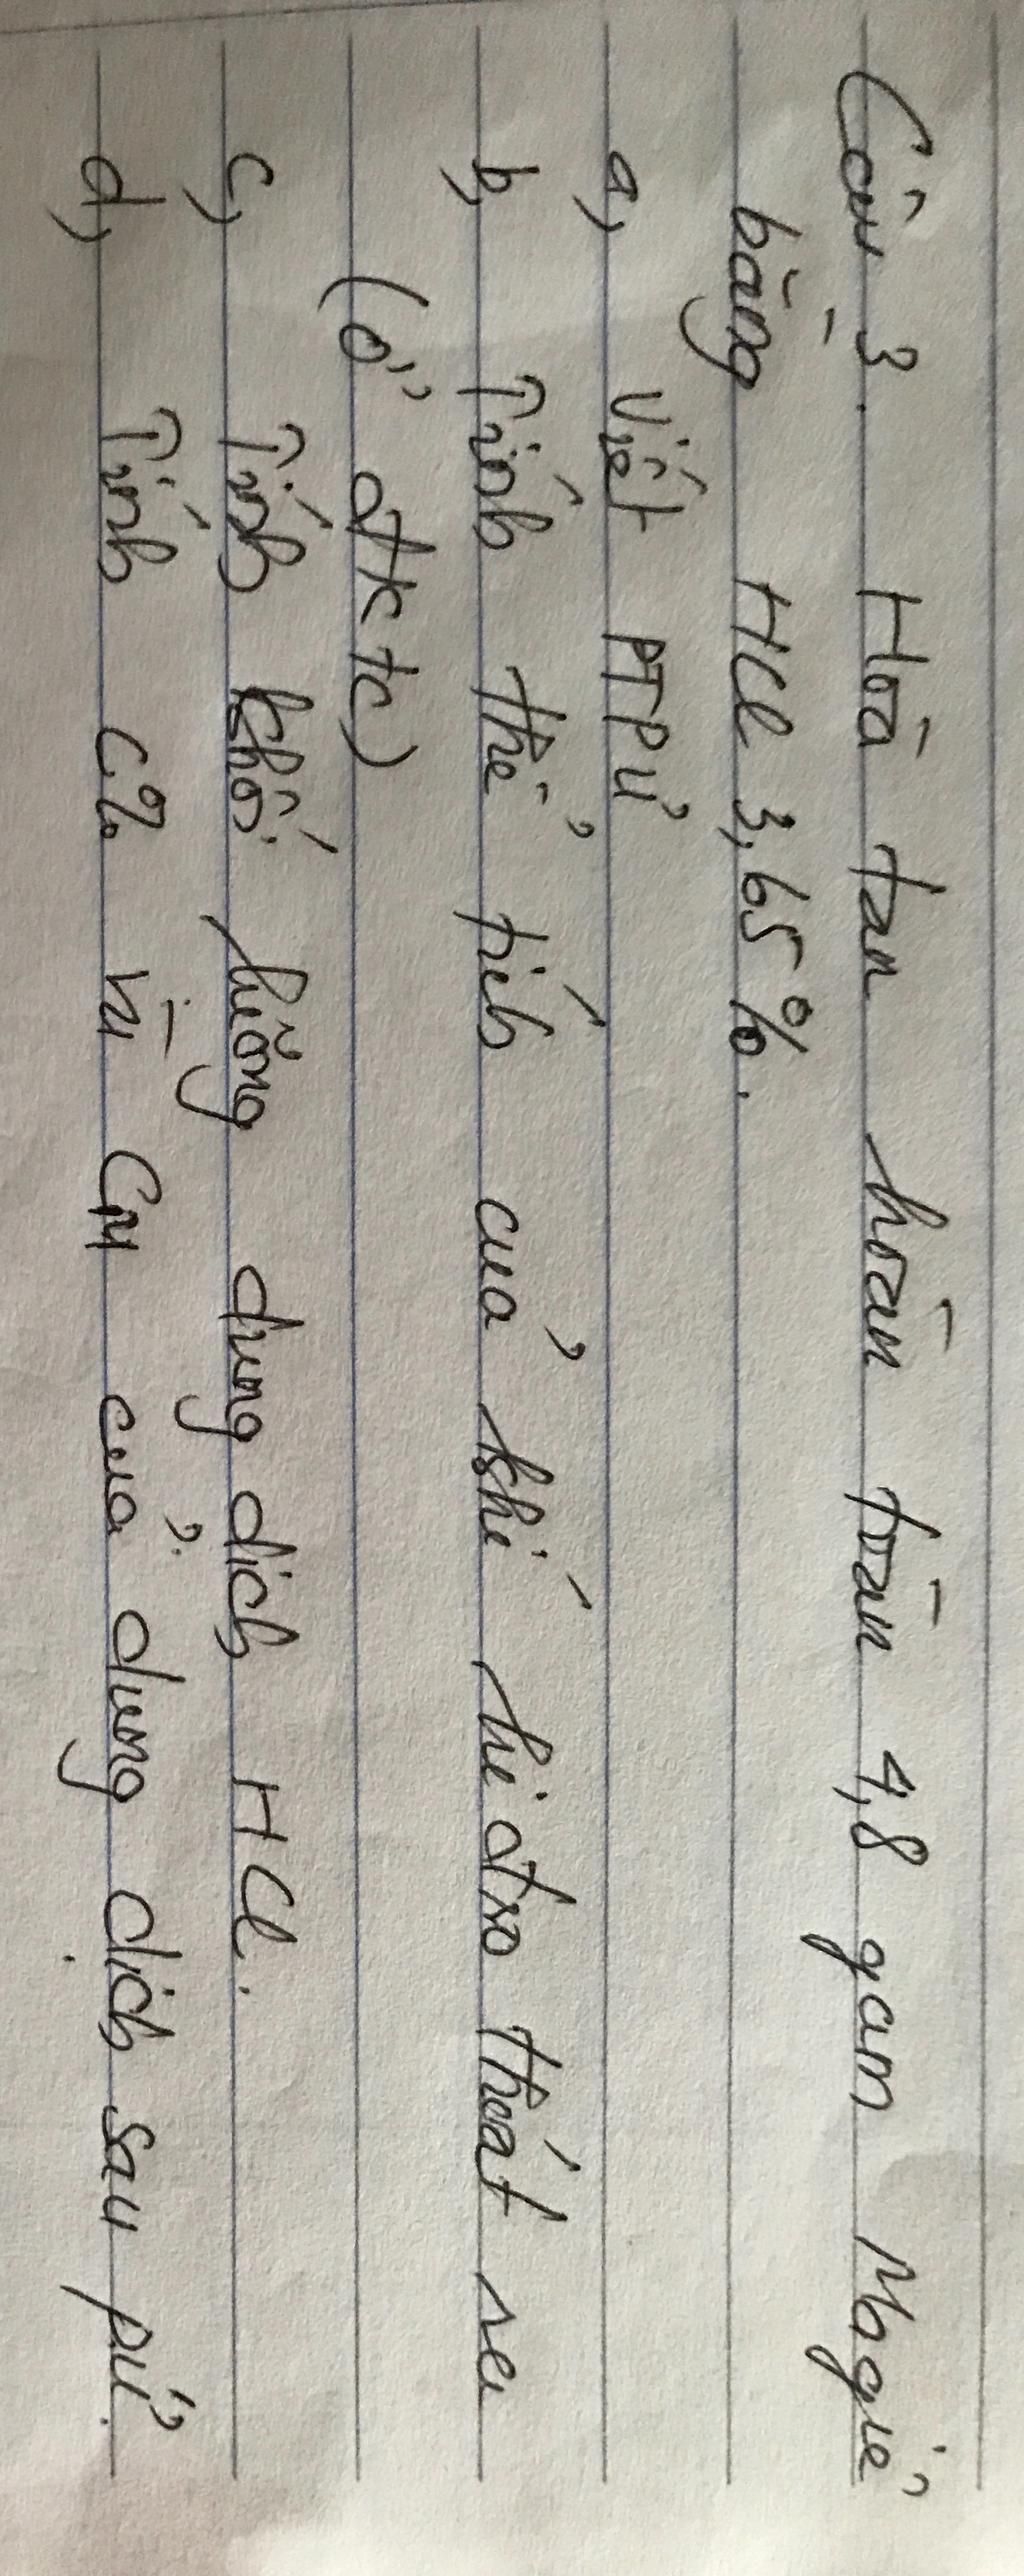 Câu 3. Hoà tan hoàn toàn 4,8 gam Magiê
bằng HCl 3,65%.
a, Viết PTPƯ
b, Tính thể tích của khí hiđro thoát ra
(ở đktc)
c, Tính khối lượng dung dịch HCl.
d, Tính C% và CM của dung dịch sau pứ.